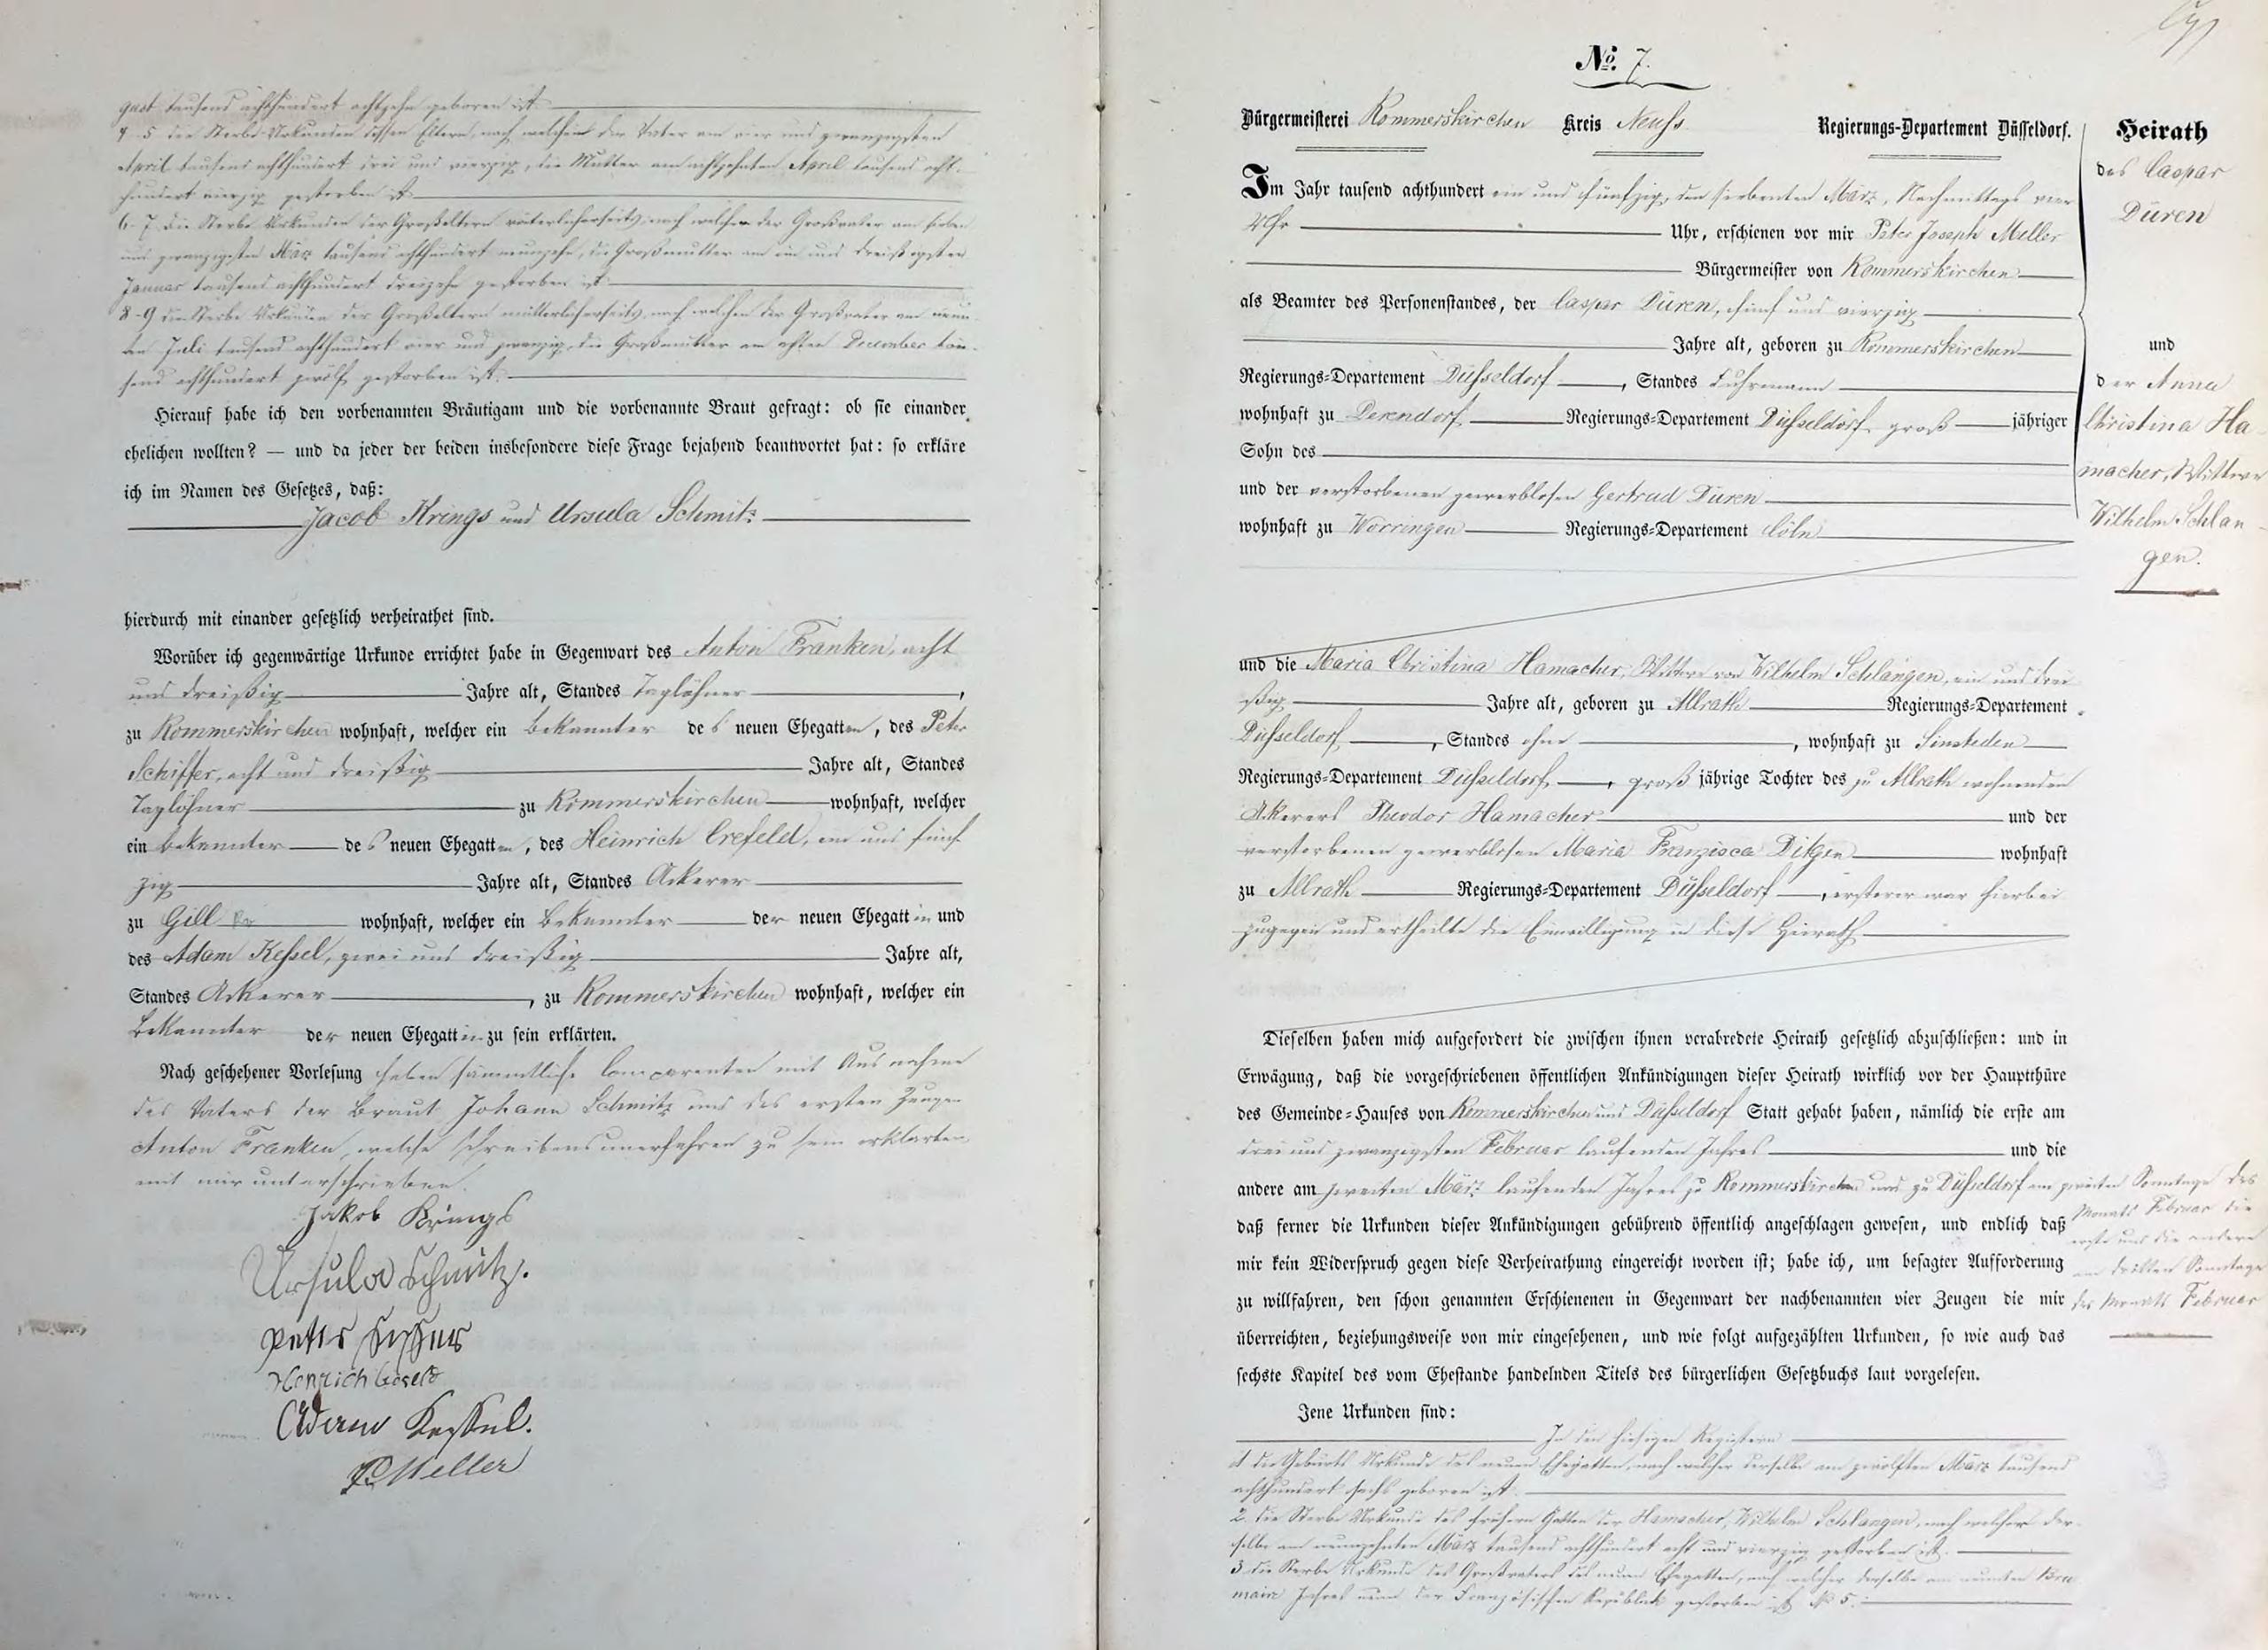 gust tausend achthundert achtzehn geboren ist.
4-5 die Sterbe-Urkunden dessen Eltern, nach welchen der Vater am vier und zwanzigsten
April tausend achthundert drei und vierzig, die Mutter am achtzehnten April tausend acht-
hundert vierzig gestorben ist.
6-7 die Sterbe Urkunden der Großeltern väterlicherseits, nach welchen der Großvater am sieben
und zwanzigsten März tausend achthundert neunzehn, die Großmutter am ein und dreißigsten
Januar tausend achthundert dreizehn gestorben ist.
8-9 die Sterbe Urkunden der Großeltern mütterlicherseits, nach welchen der Großvater am neun-
ten Juli tausend achthundert vier und zwanzig, die Großmutter am achten December tau-
send achthundert zwölf gestorben ist.
Hierauf habe ich den vorbenannten Bräutigam und die vorbenannte Braut gefragt: ob sie einander
ehelichen wollten? — und da jeder der beiden insbesondere diese Frage bejahend beantwortet hat: so erkläre
ich im Namen des Gesetzes, daß:
Jacob Krings und Ursula Schmitz
hierdurch mit einander gesetzlich verheirathet sind.
Worüber ich gegenwärtige Urkunde errichtet habe in Gegenwart des Anton Franken, acht
und dreißig Jahre alt, Standes Taglöhner,
zu Rommerskirchen wohnhaft, welcher ein Bekannter des neuen Ehegatten, des Peter
Schiffer, acht und dreißig Jahre alt, Standes
Taglöhner zu Rommerskirchen wohnhaft, welcher
ein Bekannter des neuen Ehegatten, des Heinrich Crefeld, ein und fünf-
zig Jahre alt, Standes Ackerer
zu Gill wohnhaft, welcher ein Bekannter der neuen Ehegattin und
des Adam Kessel, zwei und dreißig Jahre alt,
Standes Ackerer, zu Rommerskirchen wohnhaft, welcher ein
Bekannter der neuen Ehegattin zu sein erklärten.
Nach geschehener Vorlesung haben sämmtliche Comparenten mit Ausnahme
des Vaters der Braut Johann Schmitz und des ersten Zeugen
Anton Franken, welche schreibensunerfahren zu sein erklärten
mit mir unterschrieben.
Jakob Krings
Ursula Schmitz.
Peter Schiffer
Henrich Crefeld
Adam Kessel.
P. Meller
No. 7.
Bürgermeisterei Rommerskirchen Kreis Neuss Regierungs-Departement Düsseldorf.
Im Jahr tausend achthundert ein und fünfzig, den siebenten März, Nachmittags vier
Uhr Uhr, erschienen vor mir Peter Joseph Meller
Bürgermeister von Rommerskirchen
als Beamter des Personenstandes, der Caspar Düren, fünf und vierzig
Jahre alt, geboren zu Rommerskirchen
Regierungs-Departement Düsseldorf, Standes Fuhrmann
wohnhaft zu Derendorf Regierungs-Departement Düsseldorf groß jähriger
Sohn des
und der verstorbenen gewerblosen Gertrud Düren
wohnhaft zu Worringen Regierungs-Departement Cöln
und die Maria Christina Hamacher, Wittwe von Wilhelm Schlangen, ein und drei
ßig Jahre alt, geboren zu Allrath Regierungs-Departement
Düsseldorf, Standes ohne, wohnhaft zu Sinsteden
Regierungs-Departement Düsseldorf, groß jährige Tochter des zu Allrath wohnenden
Ackerers Theodor Hamacher und der
verstorbenen gewerblosen Maria Franzisca Ditgen wohnhaft
zu Allrath Regierungs-Departement Düsseldorf, ersterer war hierbei
zugegen und ertheilte die Einwilligung in diese Heirath
Dieselben haben mich aufgefordert die zwischen ihnen verabredete Heirath gesetzlich abzuschließen: und in
Erwägung, daß die vorgeschriebenen öffentlichen Ankündigungen dieser Heirath wirklich vor der Hauptthüre
des Gemeinde-Hauses von Rommerskirchen und Düsseldorf Statt gehabt haben, nämlich die erste am
drei und zwanzigsten Februar laufenden Jahres und die
andere am zweiten März laufenden Jahres zu Rommerskirchen und zu Düsseldorf am zweiten Sonntage des
daß ferner die Urkunden dieser Ankündigungen gebührend öffentlich angeschlagen gewesen, und endlich daß
mir kein Widerspruch gegen diese Verheirathung eingereicht worden ist; habe ich, um besagter Aufforderung
zu willfahren, den schon genannten Erschienenen in Gegenwart der nachbenannten vier Zeugen die mir
überreichten, beziehungsweise von mir eingesehenen, und wie folgt aufgezählten Urkunden, so wie auch das
sechste Kapitel des vom Ehestande handelnden Titels des bürgerlichen Gesetzbuchs laut vorgelesen.
Jene Urkunden sind:
In den hiesigen Registern
1 die Geburts Urkunde des neuen Ehegatten, nach welcher derselbe am zwölften März tausend
achthundert sechs geboren ist.
2. die Sterbe Urkunde des frühern Gatten der Hamacher, Wilhelm Schlangen, nach welcher der-
selbe am neunzehnten März tausend achthundert acht und vierzig gestorben ist.
3 die Sterbe Urkunde des Großvaters des neuen Ehegatten, nach welcher derselbe am neunten Bru
maire Jahres neun der Französischen Republik gestorben ist No 5.
Heirath
des Caspar
Düren
und
der Anna
Christina Ha-
macher, Wittwe
Wilhelm Schlan-
gen.
Monats Februar die
erste und die andere
am dritten Sonntage
des Monats Februar